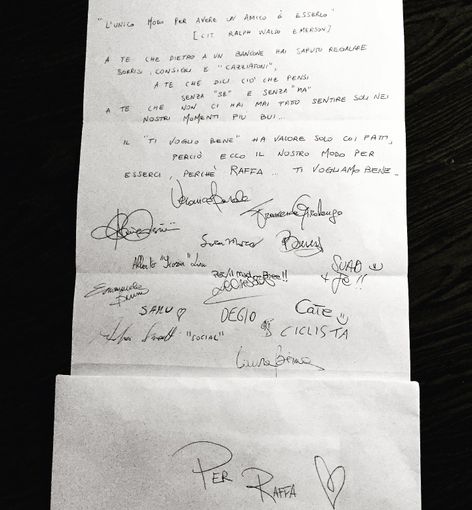 "L'UNICO MODO PER AVERE UN AMICO È ESSERLO"
[CIT. RALPH WALDO EMERSON]
A TE CHE DIETRO A UN BANCONE HAI SAPUTO REGALARE
SORRISI, CONSIGLI E "CAZZIATONI",
A TE CHE DICI CIÒ CHE PENSI
SENZA "SE" E SENZA "MA"
A TE CHE NON CI HAI MAI FATO SENTIRE SOLI NEI
NOSTRI MOMENTI PIU BUI...
IL "TI VOGLIO BENE" HA VALORE SOLO COI FATTI,
PERCIÒ ECCO IL NOSTRO MODO PER
ESSERCI, PERCHÈ RAFFA... TI VOGLIAMO BENE.
Luca
SUAD
Emmanuele
SAMU
DEGIO
Cate
"SOCIAL"
CICLISTA
Laura
PER RAFFA